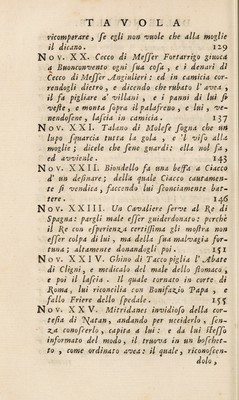 TAVOLA
ricomperare, se egli non vuole che alla moglie
il dicano. 129
NOV. XX. Cecco di Messer Fortarrigo giuoca
a Buonconvento ogni sua cosa, e i denari di
Cecco di Messer Angiulieri: ed in camicia cor-
rendogli dietro, e dicendo che rubato l'avea,
il fa pigliare a' villani, e i panni di lui si
veste, e monta sopra il palafreno, e lui, ve-
nendosene, lascia in camicia. 137
NOV. XXI. Talano di Molese sogna che un
lupo squarcia tutta la gola, e 'l viso alla
moglie; dicele che sene guardi: ella nol fa,
ed avviene. 143
NOV. XXII. Biondello fa una beffa a Ciacco
d' un desinare; della quale Ciacco cautamen-
te si vendica, faccendo lui sconciamente bat-
tere. 146
NOV. XXIII. Un Cavaliere serve al Re di
Spagna: pargli male esser guiderdonato: perchè
il Re con esperienza certissima gli mostra non
esser colpa di lui, ma della sua malvagia for-
tuna; altamente donandogli poi. 151
NOV. XXIV. Ghino di Tacco piglia l' Abate
di Cligni, e medicalo del male dello stomaco,
e poi il lascia. Il quale tornato in corte di
Roma, lui riconcilia con Bonifazio Papa, e
fallo Friere dello spedale. 155
NOV. XXV. Mitridanes invidioso della cor-
tesia di Natan, andando per ucciderlo, sen-
za conoscerlo, capita a lui: e da lui stesso
informato del modo, il truova in un boschet-
to, come ordinato avea: il quale, riconoscen-
dolo,